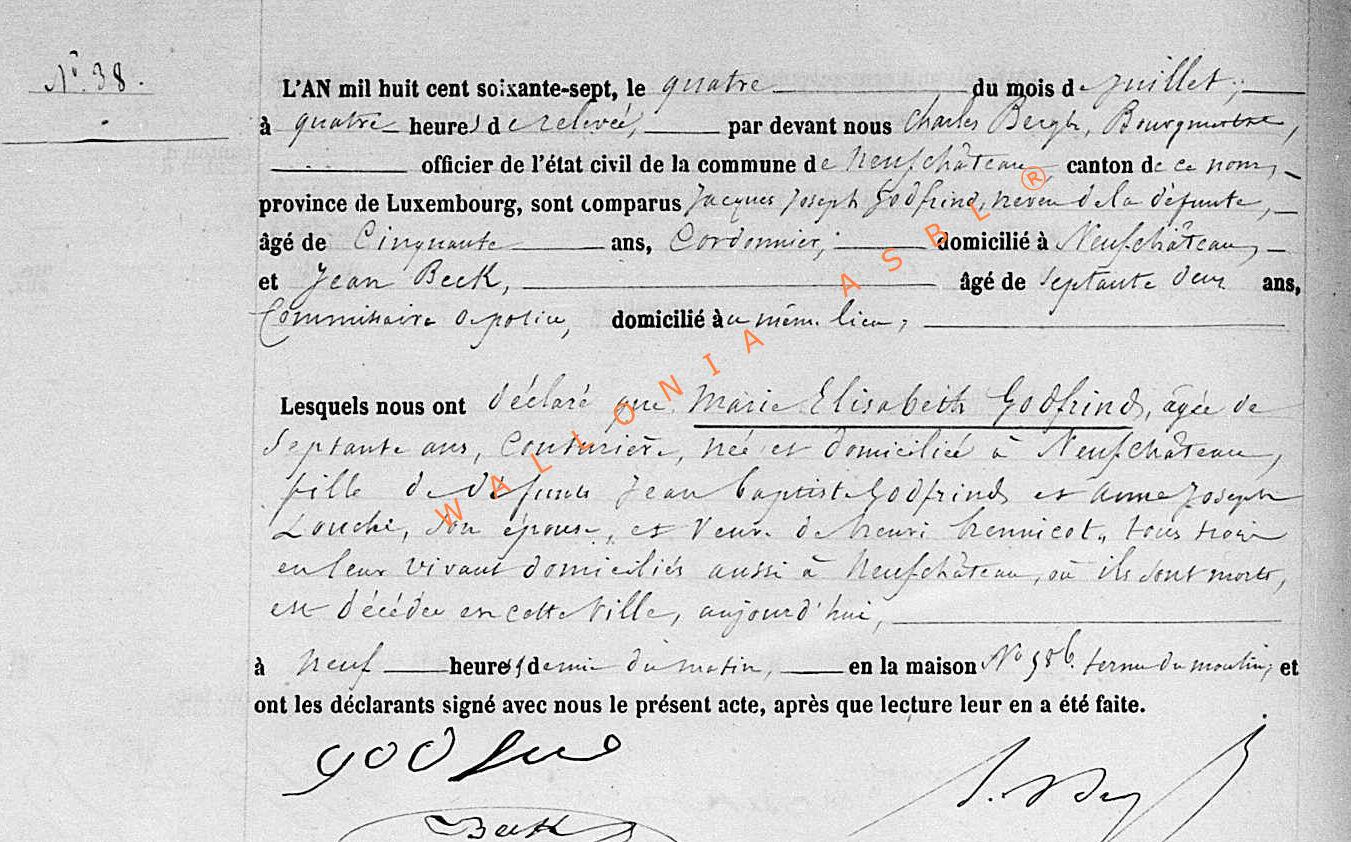 N° 38.
L'AN mil huit cent soixante-sept, le quatre du mois de juillet,
à quatre heures de relevée, par devant nous Charles Bergh, Bourgmestre,
officier de l'état civil de la commune de Neufchâteau, canton de ce nom,
province de Luxembourg, sont comparus Jacques Joseph Godfrind, neveu de la défunte,
âgé de Cinquante ans, Cordonnier, domicilié à Neufchâteau,
et Jean Beck, âgé de septante deux ans,
Commissaire de police, domicilié au même lieu,
Lesquels nous ont déclaré que Marie Elisabeth Godfrind, âgée de
septante ans, Couturière, née et domiciliée à Neufchâteau,
fille de défunts Jean Baptiste Godfrind et Anne Joseph
Louche, son épouse, et veuve de henri hennicot, tous trois
en leur vivant domiciliés aussi à Neufchâteau, où ils sont morts,
est décédée en cette ville, aujourd'hui,
à neuf heures et demie du matin, en la maison N° 586. du moulin, et
ont les déclarants signé avec nous le présent acte, après que lecture leur en a été faite.
Beck
WALLONIA ASBL ®